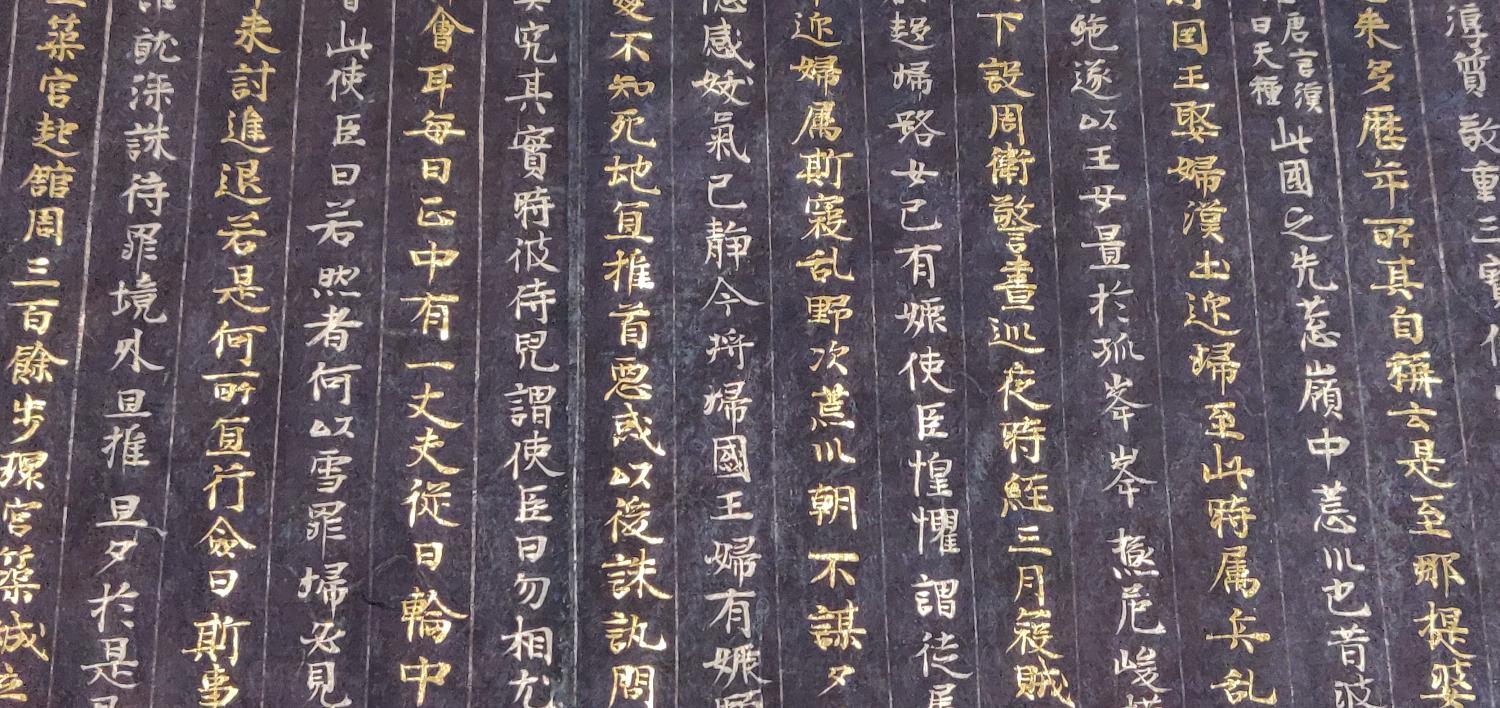 淳質敬重三寶
來多歷年所其自稱云是至那提婆
唐言漢
日天種
此國之先葱嶺中荒川也昔波
國王娶婦漢土迎歸至此時属兵乱
絶遂以王女置於孤峯峯極危峻
下設周衛警晝巡夜時經三月寇賊
趣歸路女已有娠使臣惶懼謂徒属
迎婦属斯寇乱野次荒川朝不謀夕
感妖氣已静今將歸國王婦有娠
憂不知死地宜推首惡或以後誅訊問
究其實時彼侍兒謂使臣曰勿相尤
會耳每日正中有一丈夫從日輪中
此使臣曰若然者何以雪罪歸必見
来討進退若是何所宜行僉曰斯事
就深誅待罪境外且推旦夕於是
築宮起館周三百餘步環宮築城立